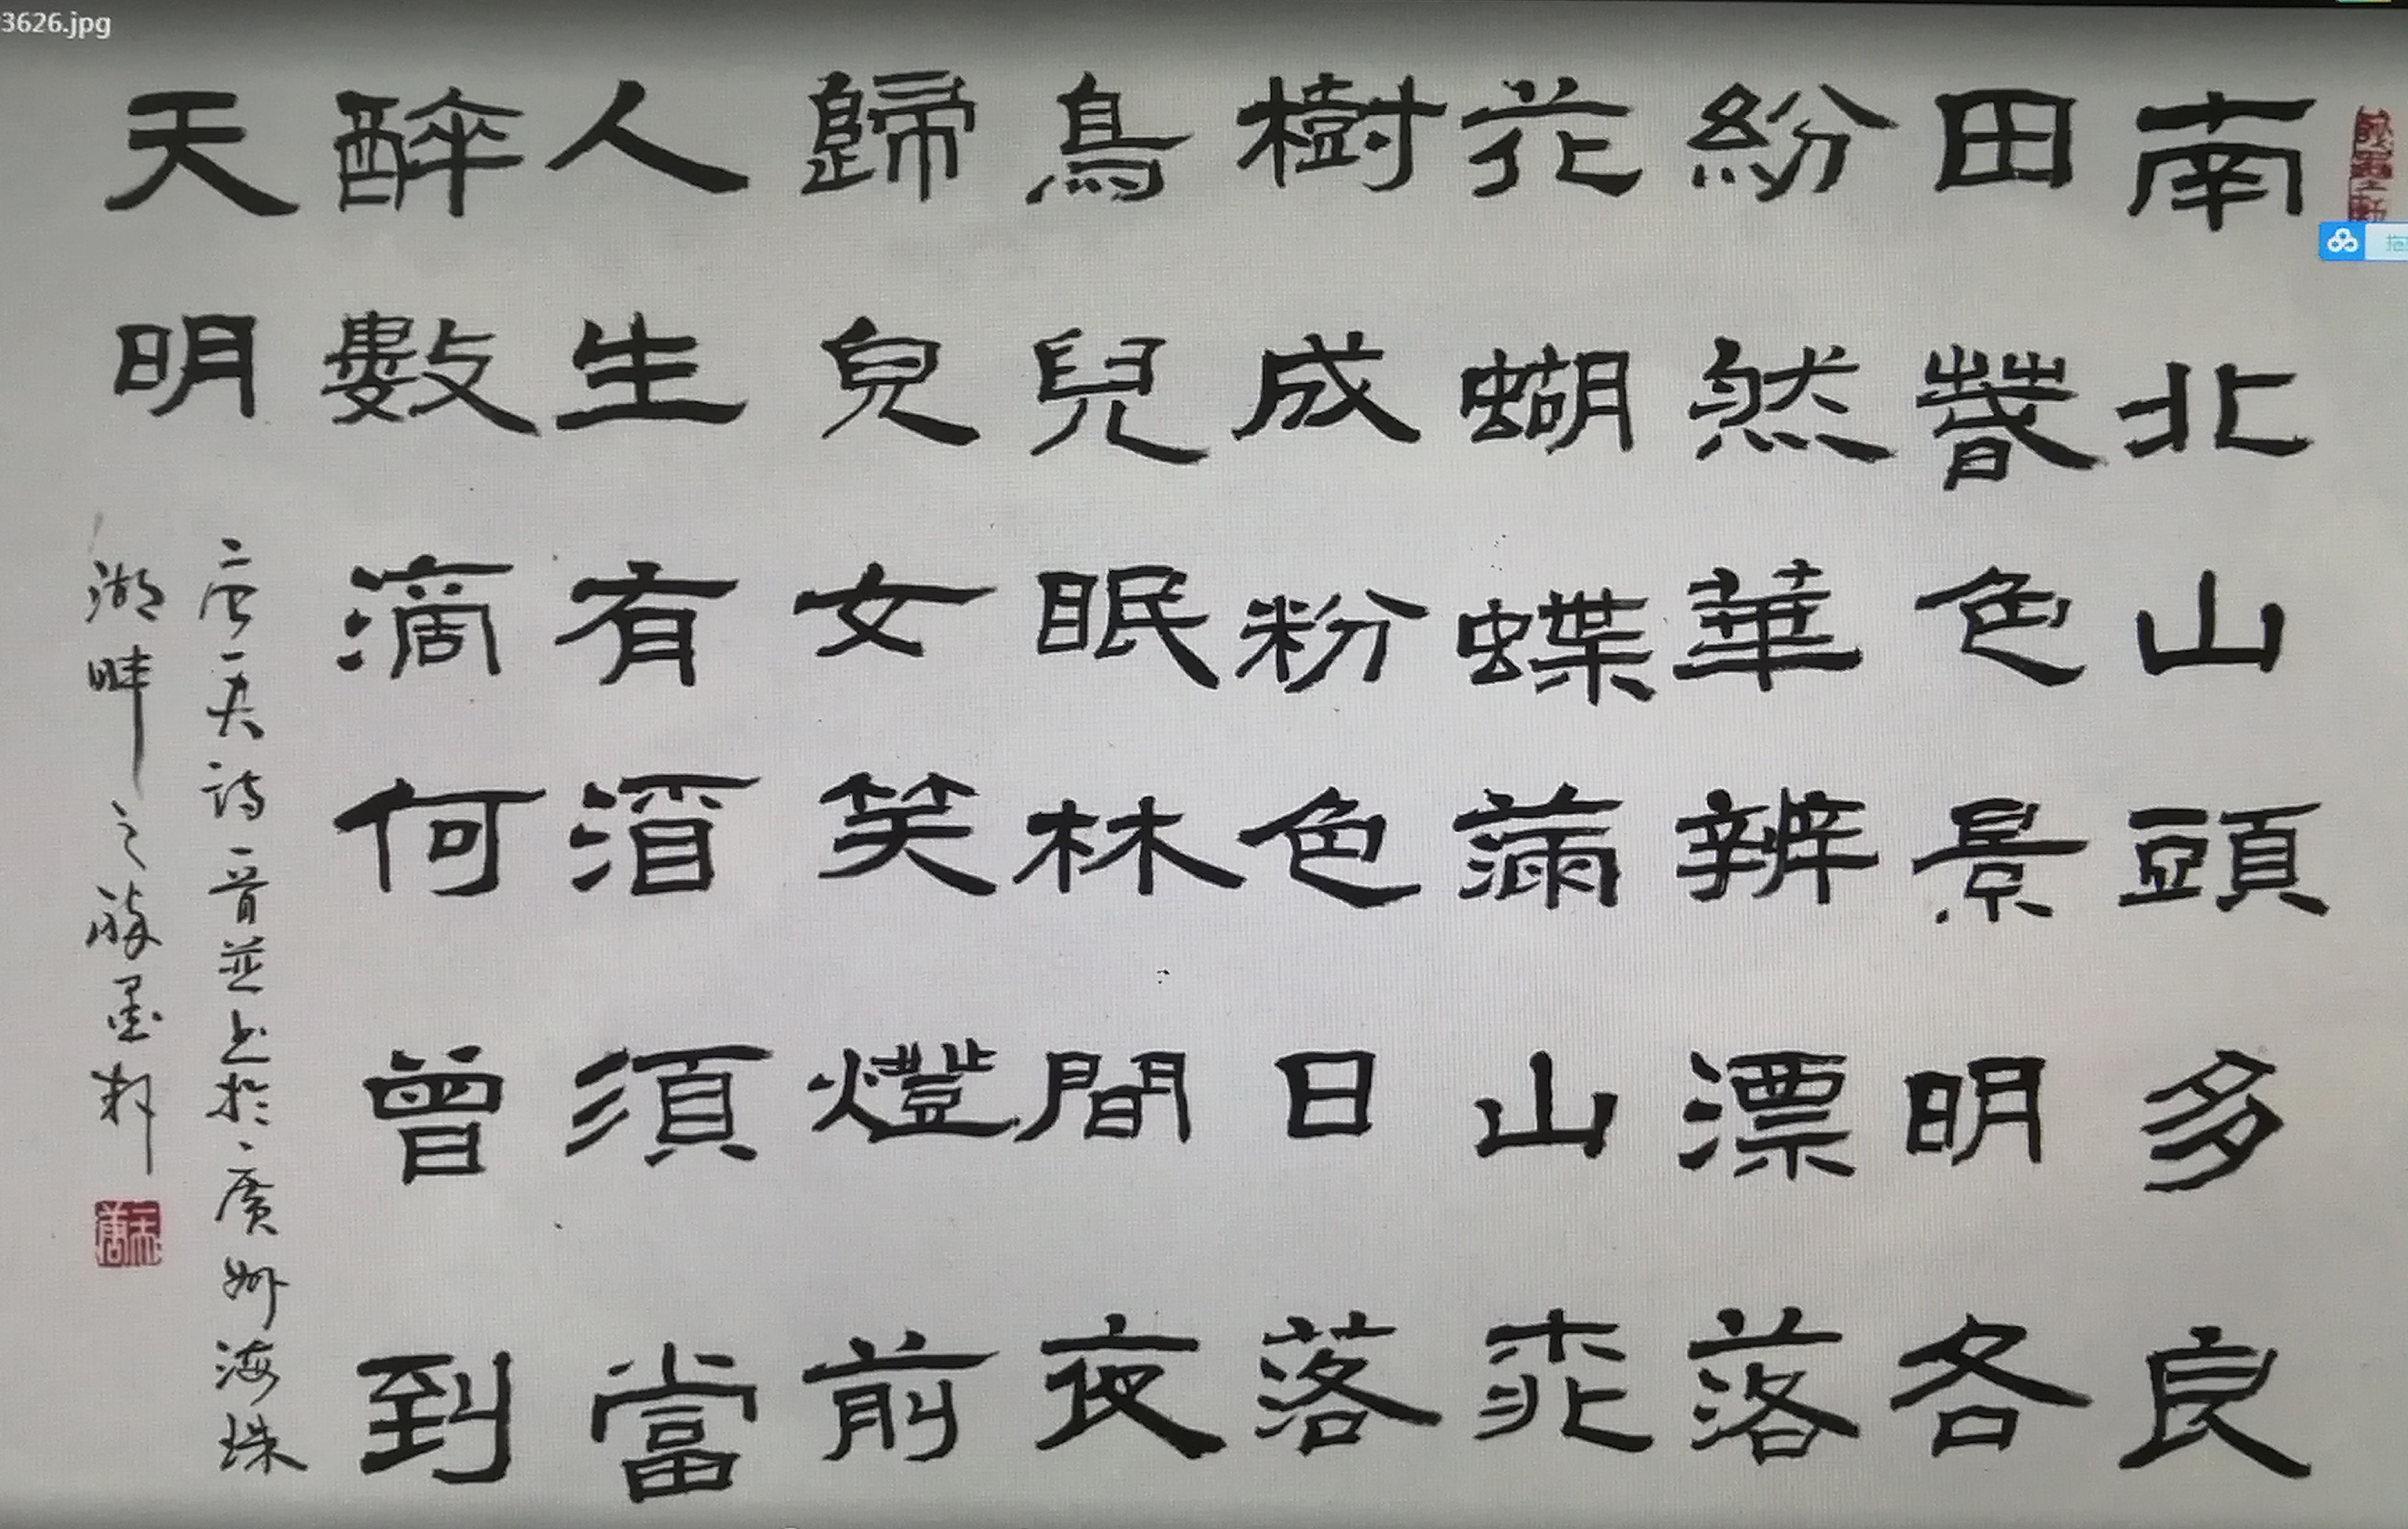 藏墨之軒
南北山頭多良
田萅色景明各
紛然華辨漂落
花蝴蝶滿山桃
樹成粉色日落
鳥兒眠林間夜
歸兒女笑燈前
人生有酒須當
醉數滴何曾到
天明
唐一夫詩一首並书於廣州海珠
湖畔之藏墨軒
3626.jpg